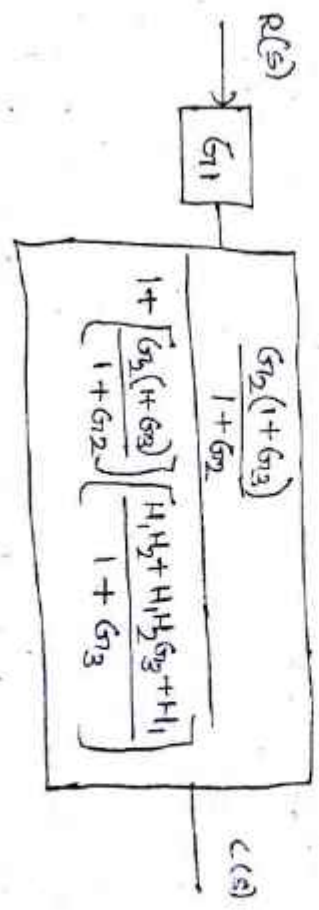 R(s)
G1
G2(1+G3)
1+G2
1+ [G2(1+G3)] [H1H2+H1H2G3+H1]
1+G2 1+G3
C(s)